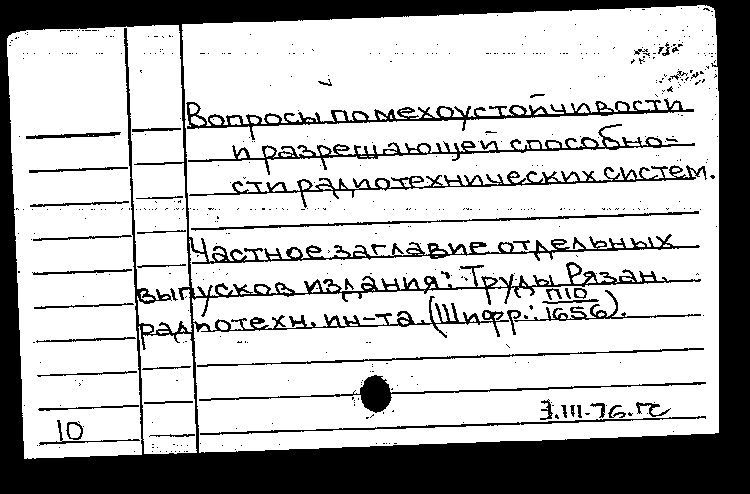 Вопросы помехоустойчивости
и разрешающей способно-
сти радиотехнических систем.
Частное заглавие отдельных
выпусков издания: Труды Рязан.
радиотехн. ин-та. (Шифр: П10/1656).
10
3.III-76.гс